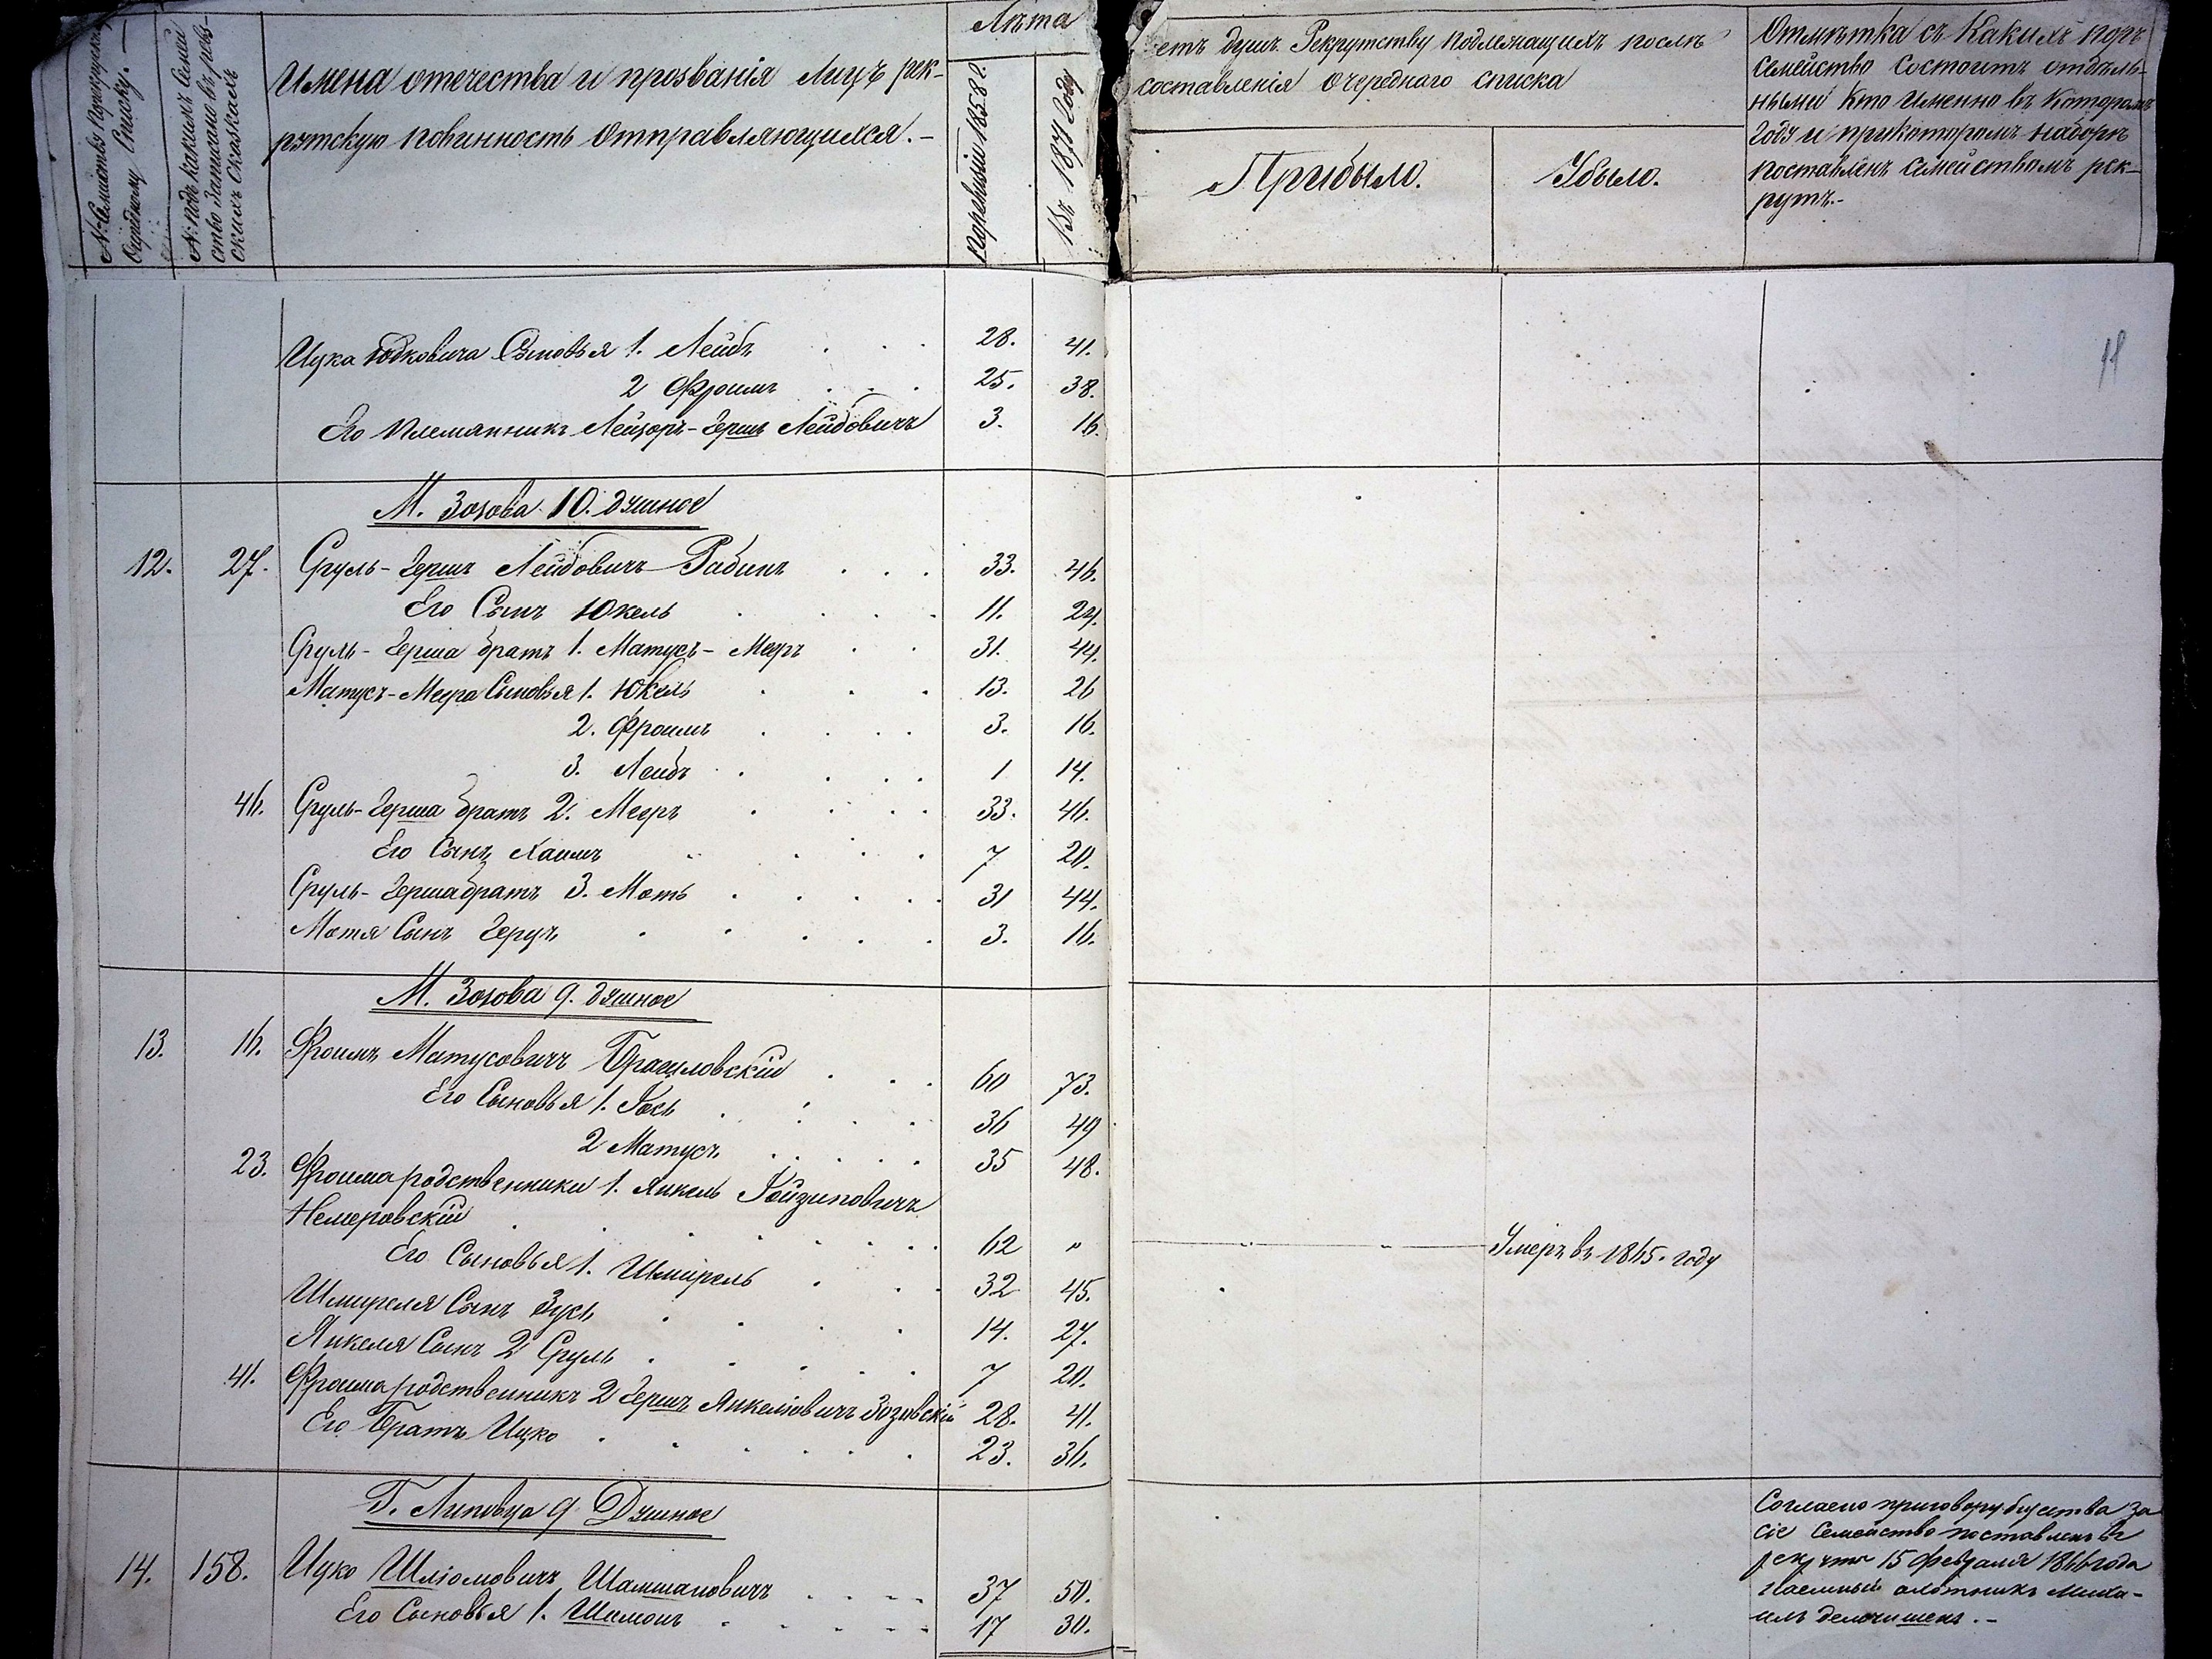 № Семейства по рекрутск.
Очередному Списку. —
№ подъ какимъ Семей
ство записано въ реви
скихъ Сказкахъ
Имена отечества и прозванія лицъ рек-
рутскую повинность отправляющихся. -
Лѣта
По ревизіи 1858 г.
Въ 1871 Году
етъ душъ Рекрутству подлежащихъ послѣ
составленія очереднаго списка
Прибыло.
Убыло.
Отмѣтка съ Какихъ поръ
Семейство Состоитъ отдѣль-
нымъ Кто именно въ Которомъ
Году и прикоторомъ наборѣ
поставленъ Семействомъ рек-
рутъ. -
11
Ицка Юдковича Сыновья 1. Лейбъ . . . 28. 41.
2 Фроимъ . . . 25. 38.
Его племянникъ Лейзоръ-Гершъ Лейбовичъ 3. 16.
М. Зозова 10. душное
12. 27. Сруль-Гершъ Лейбовичъ Рабинъ . . . 33. 46.
Его Сынъ Юкель . . . . 11. 24.
Сруль-Герша братъ 1. Матусъ-Меєръ . . 31. 44.
Матусъ-Меера Сыновья 1. Юкель . . . 13. 26
2. Фроимъ . . . . 3. 16.
3. Лейбъ . . . . 1 14.
46. Сруль-Герша братъ 2. Мееръ . . . . 33. 46.
Его Сынъ Хаимъ . . . . 7 20.
Сруль-Герша братъ 3. Моть . . . . . 31 44.
Мотя Сынъ Герцъ . . . . . 3. 16.
М. Зозова 9. душное
13. 16. Фроимъ Матусовичъ Браиловскій . . . 60 73.
Его Сыновья 1. Іосъ . . . . 36 49
2 Матусъ . . . . . 35 48.
23. Фроима родственники 1. Янкель Іойзиповичъ
Немеровскій . . . . . . . 62 " " " Умеръ въ 1865. году
Его Сыновья 1. Шмирель . . . 32 45.
Шмиреля Сынъ Зусь . . . . 14. 27.
Янкеля Сынъ 2 Сруль . . . . . 7 20.
41. Фроима родственникъ 2 Гершъ Янкеліовичъ Зозовскій 28. 41.
Его Братъ Ицко . . . . . . 23. 36.
Г. Липовца 9 Душное
14. 158. Ицко Шліомовичъ Шамшановичъ . . . . 37 50.
Его Сыновья 1. Шимонъ . . . . . 17 30.
Согласно приговору общества за
сіе Семейство поставленъ въ
рекруты 15 февраля 1866 года
наемный охотникъ Миха-
илъ . -